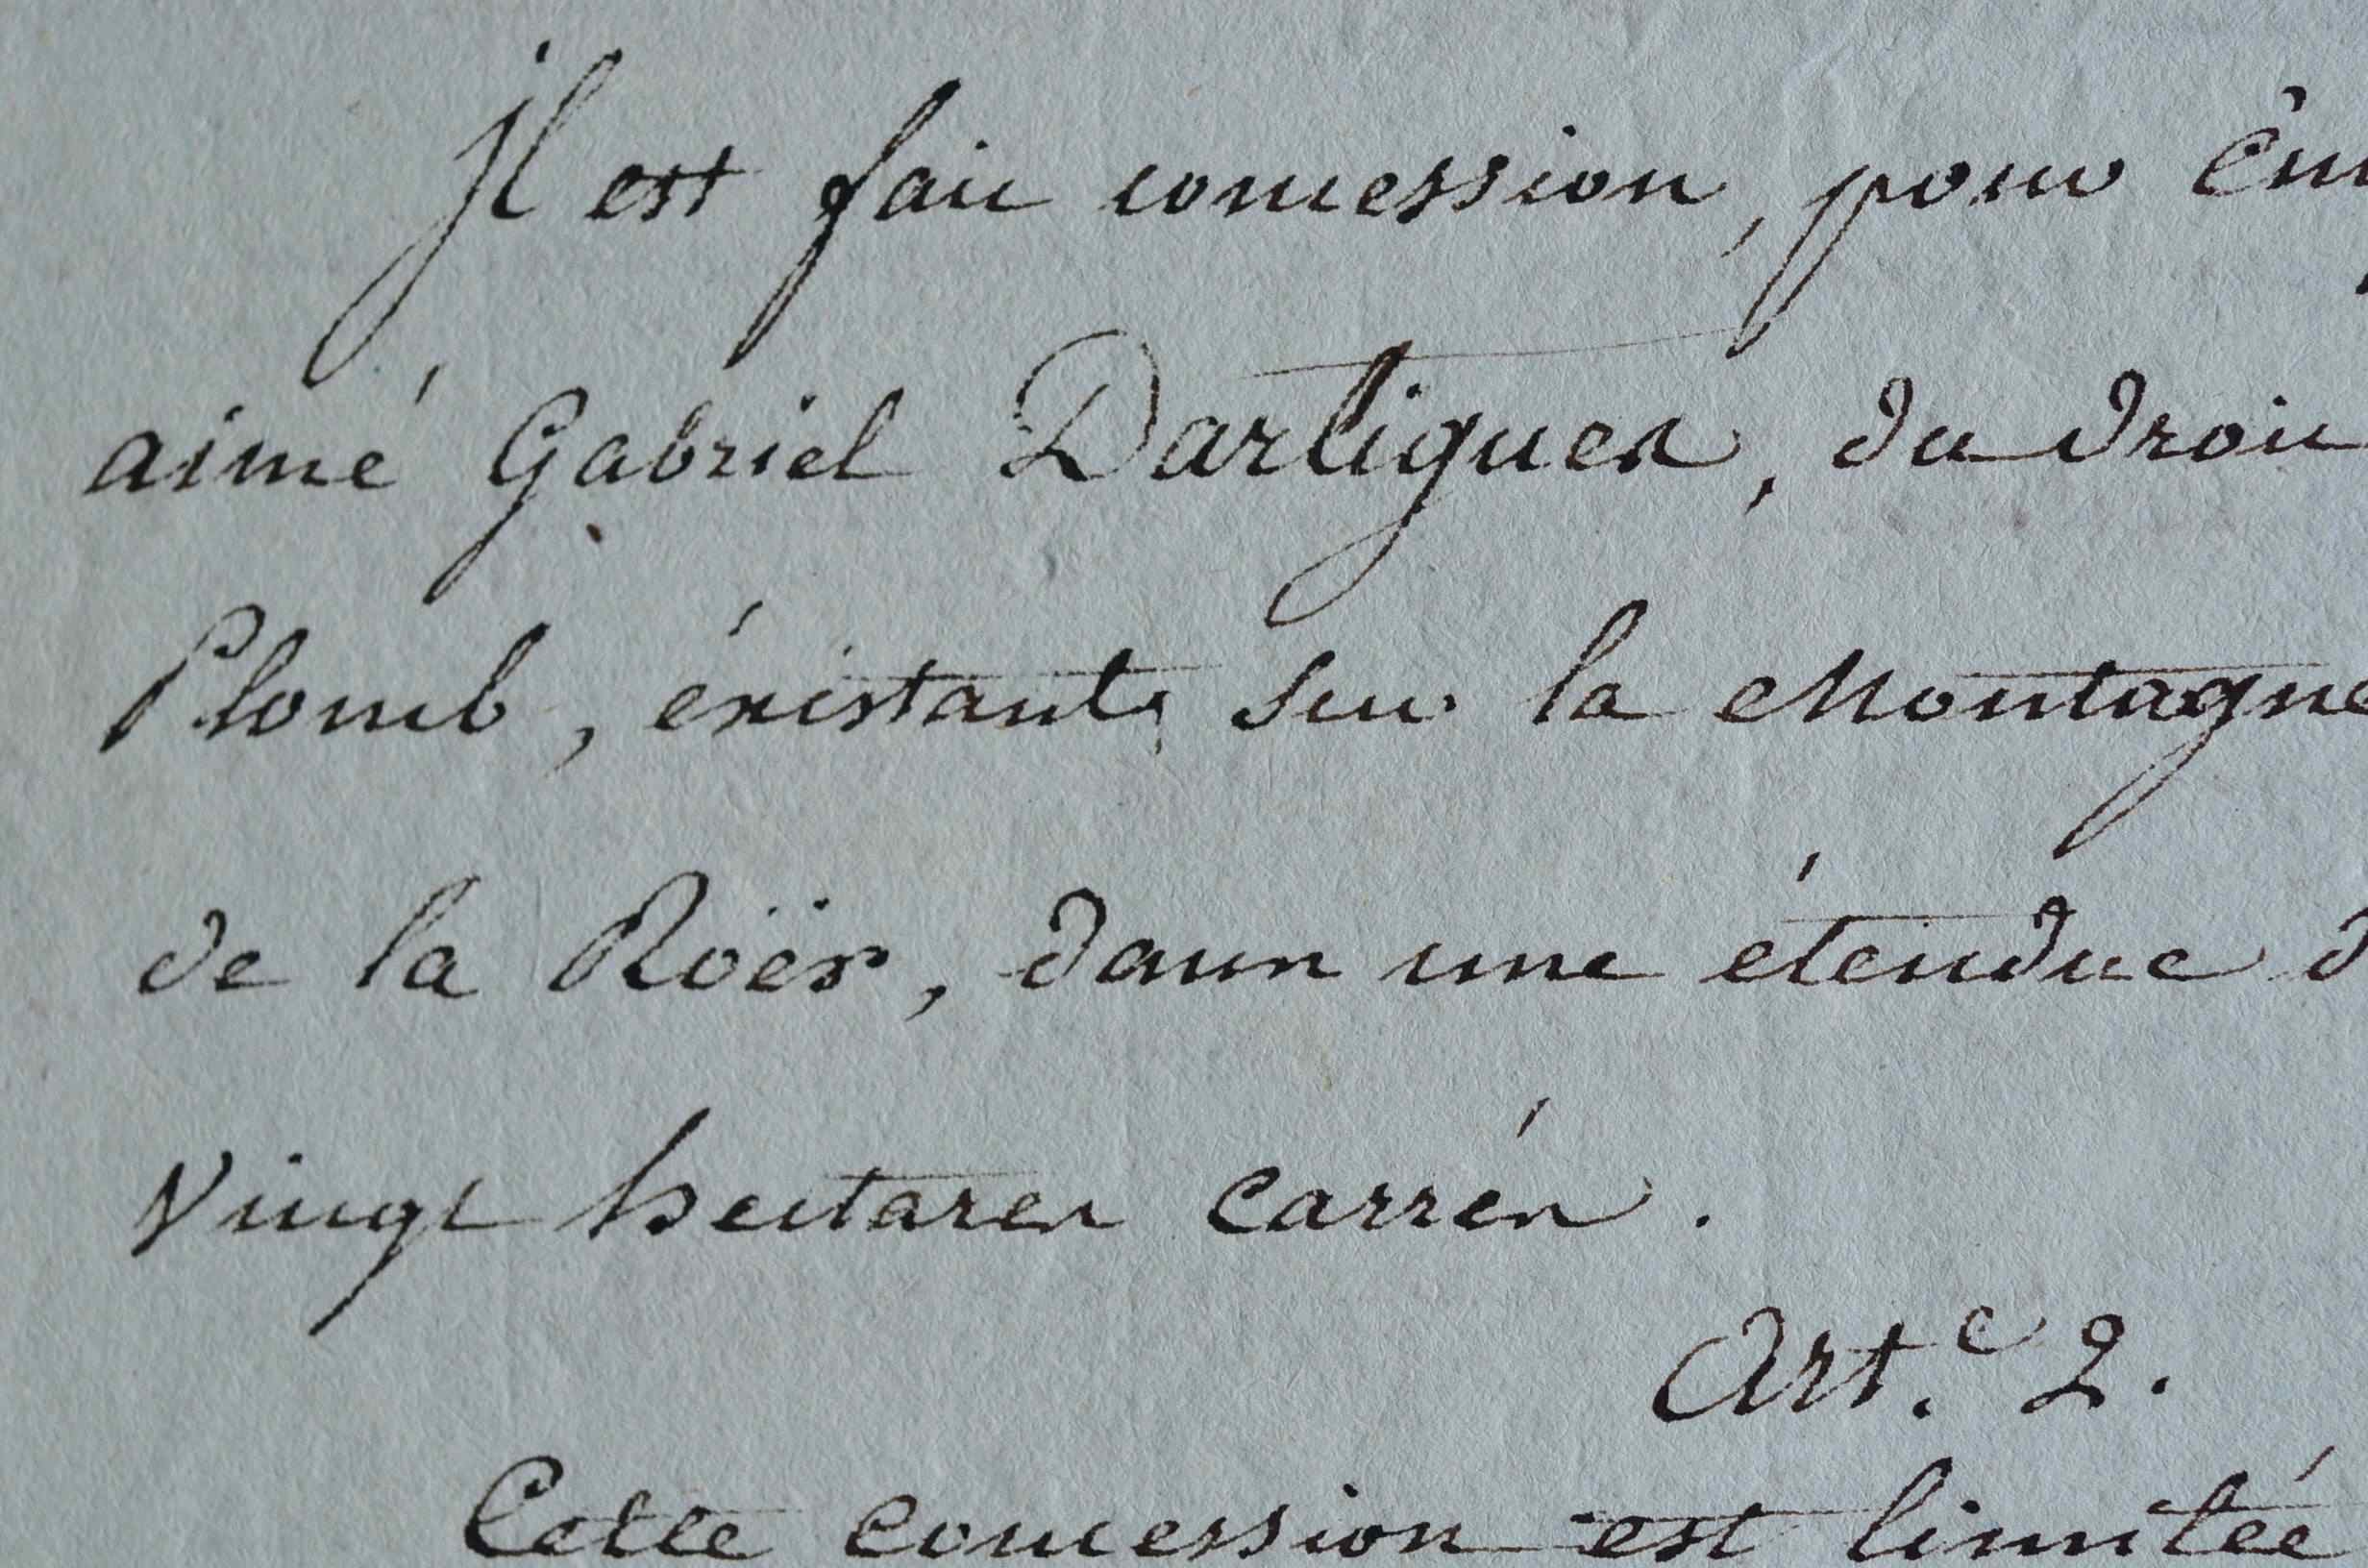 Il est fait concession, pour
aimé Gabriel Dartigues, du droit
Plomb, éxistants sur la Montagne
de la Roër, dans une étendue
Vingt hectares carrés.
Art.e 2.
Cette concession est limitée